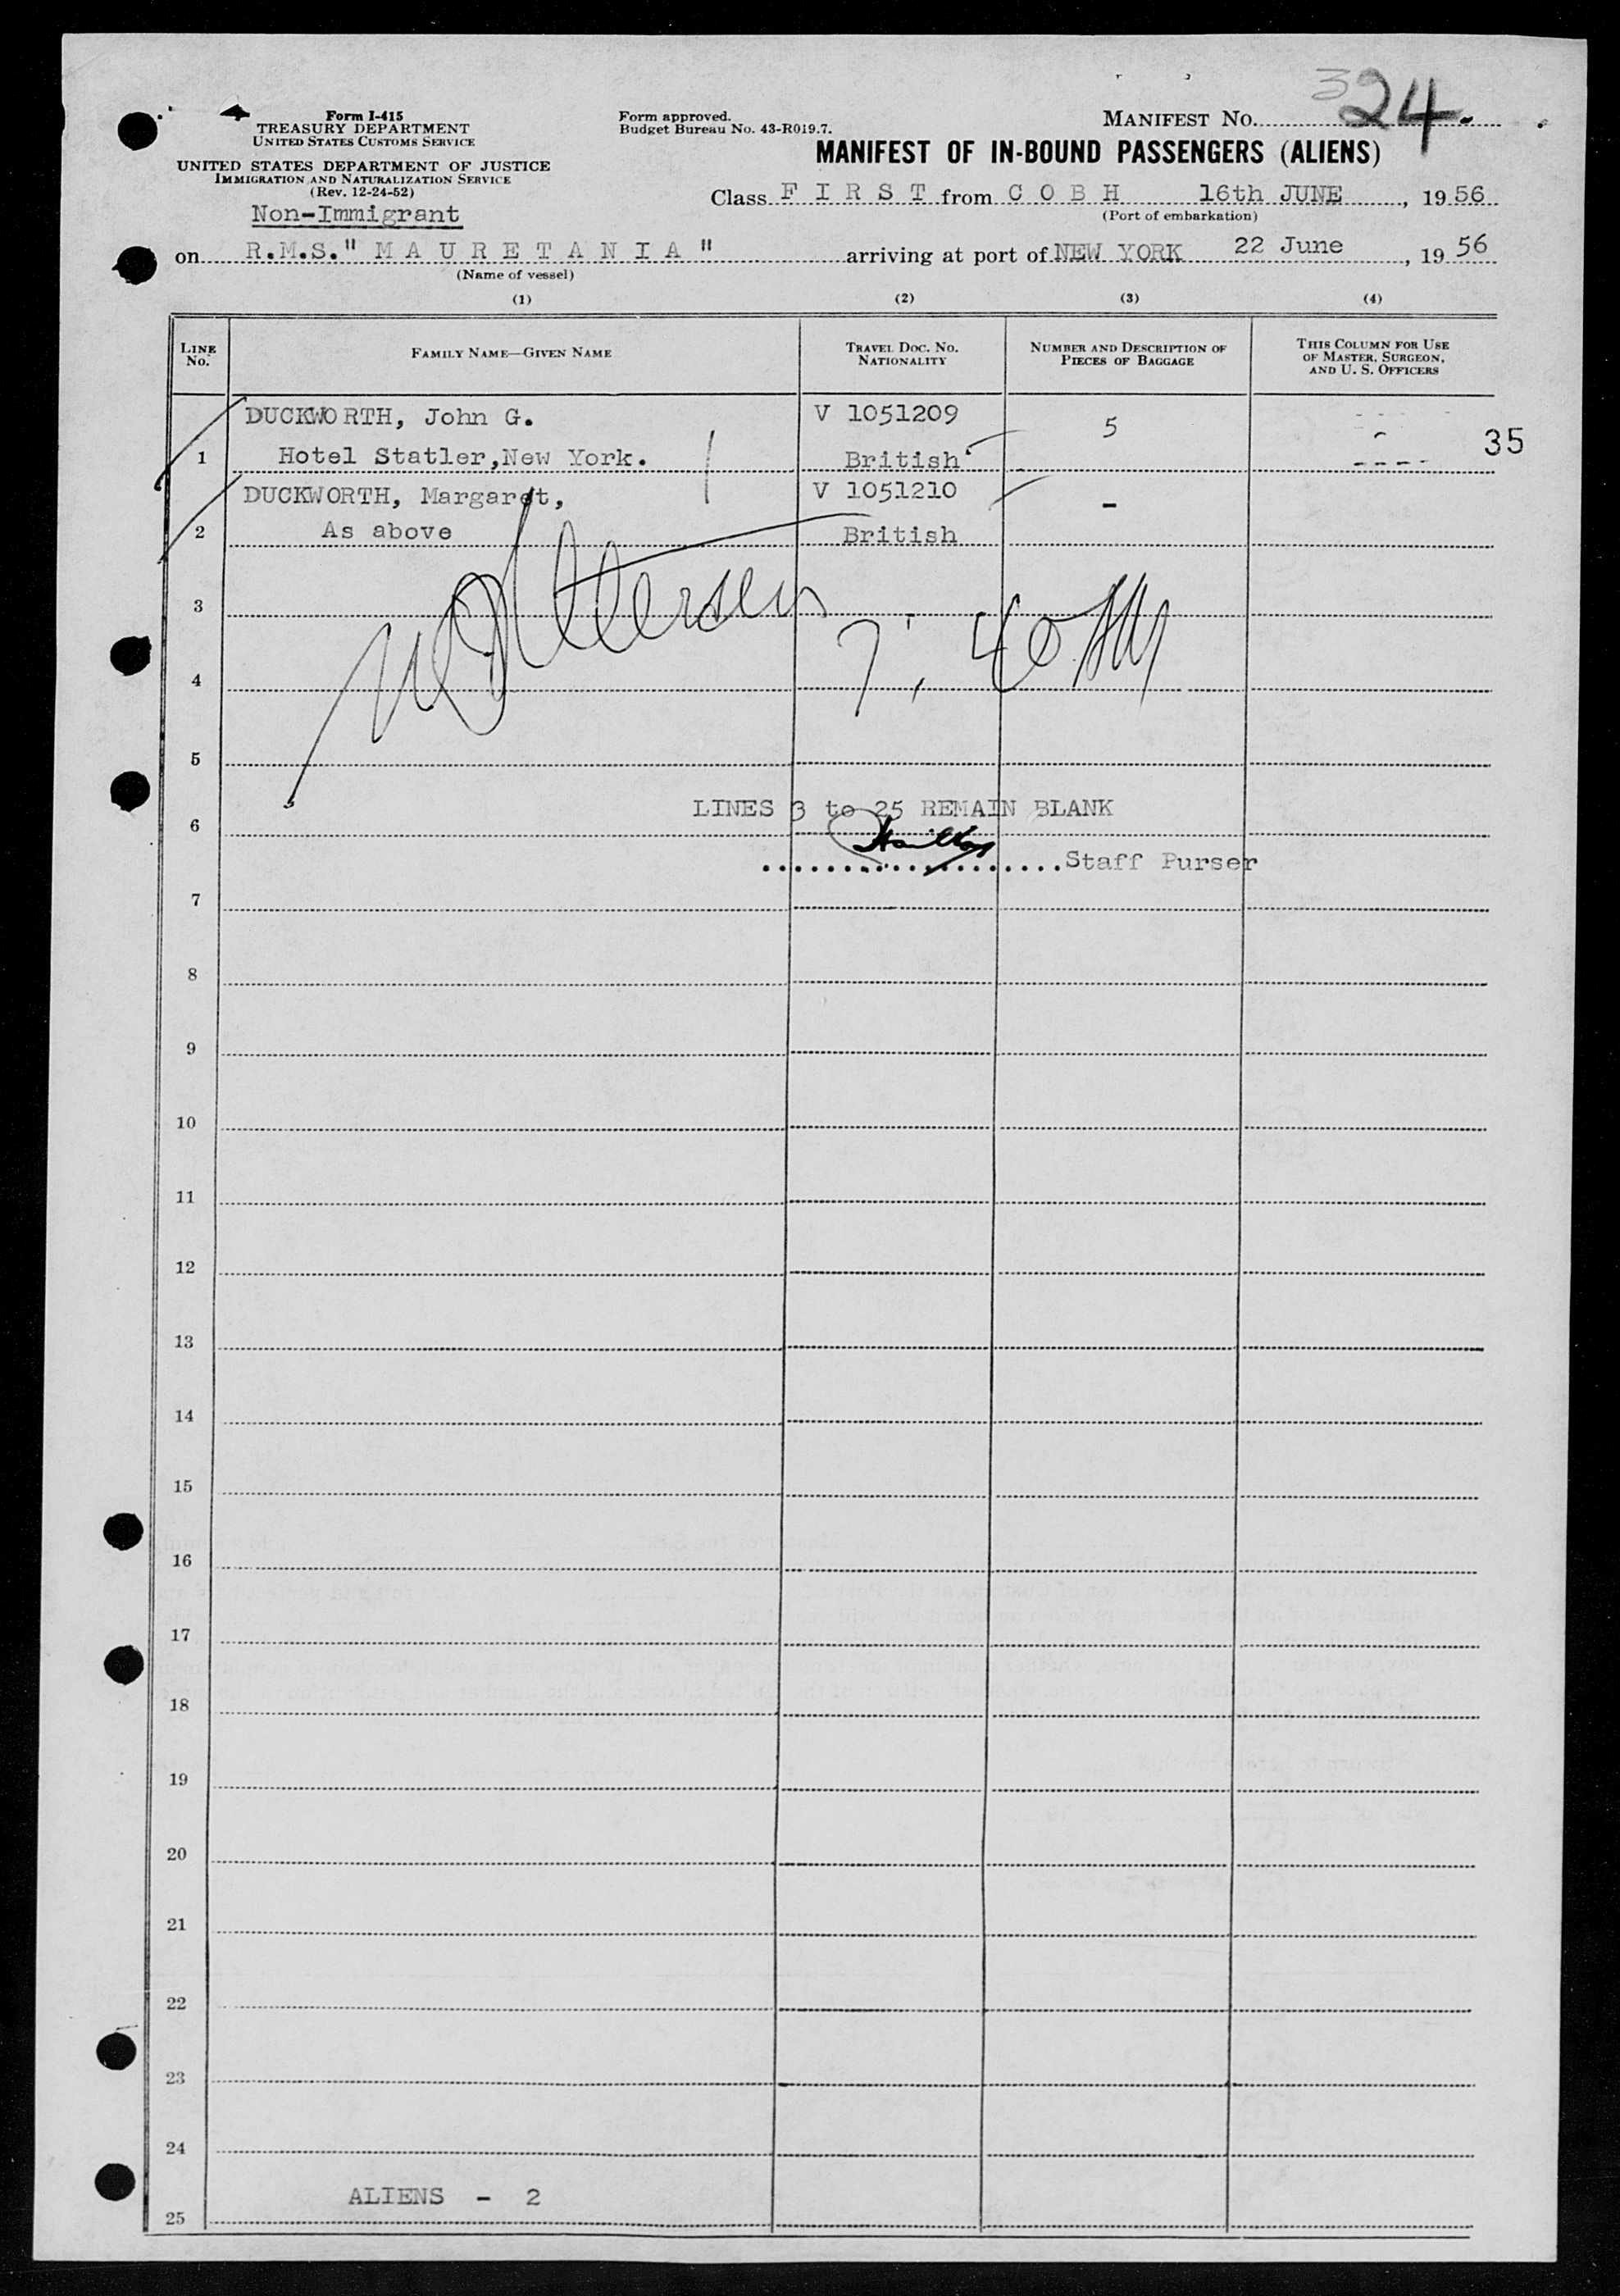 Form I-415
TREASURY DEPARTMENT
UNITED STATES CUSTOMS SERVICE
UNITED STATES DEPARTMENT OF JUSTICE
IMMIGRATION AND NATURALIZATION SERVICE
(Rev. 12-24-52)
Non-Immigrant
Form approved.
Budget Bureau No. 43-R019.7.
MANIFEST NO. 324.
MANIFEST OF IN-BOUND PASSENGERS (ALIENS)
Class F I R S T from C O B H 16th JUNE, 1956
(Port of embarkation)
on R.M.S." M A U R E T A N I A " arriving at port of NEW YORK 22 June, 19 56
(Name of vessel)
(1) (2) (3) (4)
LINE No. FAMILY NAME—GIVEN NAME TRAVEL DOC. NO. NATIONALITY NUMBER AND DESCRIPTION OF PIECES OF BAGGAGE THIS COLUMN FOR USE OF MASTER, SURGEON, AND U. S. OFFICERS
DUCKWORTH, John G. V 1051209 5
1 Hotel Statler,New York. British 35
DUCKWORTH, Margaret, V 1051210 -
2 As above British
3
4
5
LINES 3 to 25 REMAIN BLANK
6
....................Staff Purser
7
8
9
10
11
12
13
14
15
16
17
18
19
20
21
22
23
24
ALIENS - 2
25